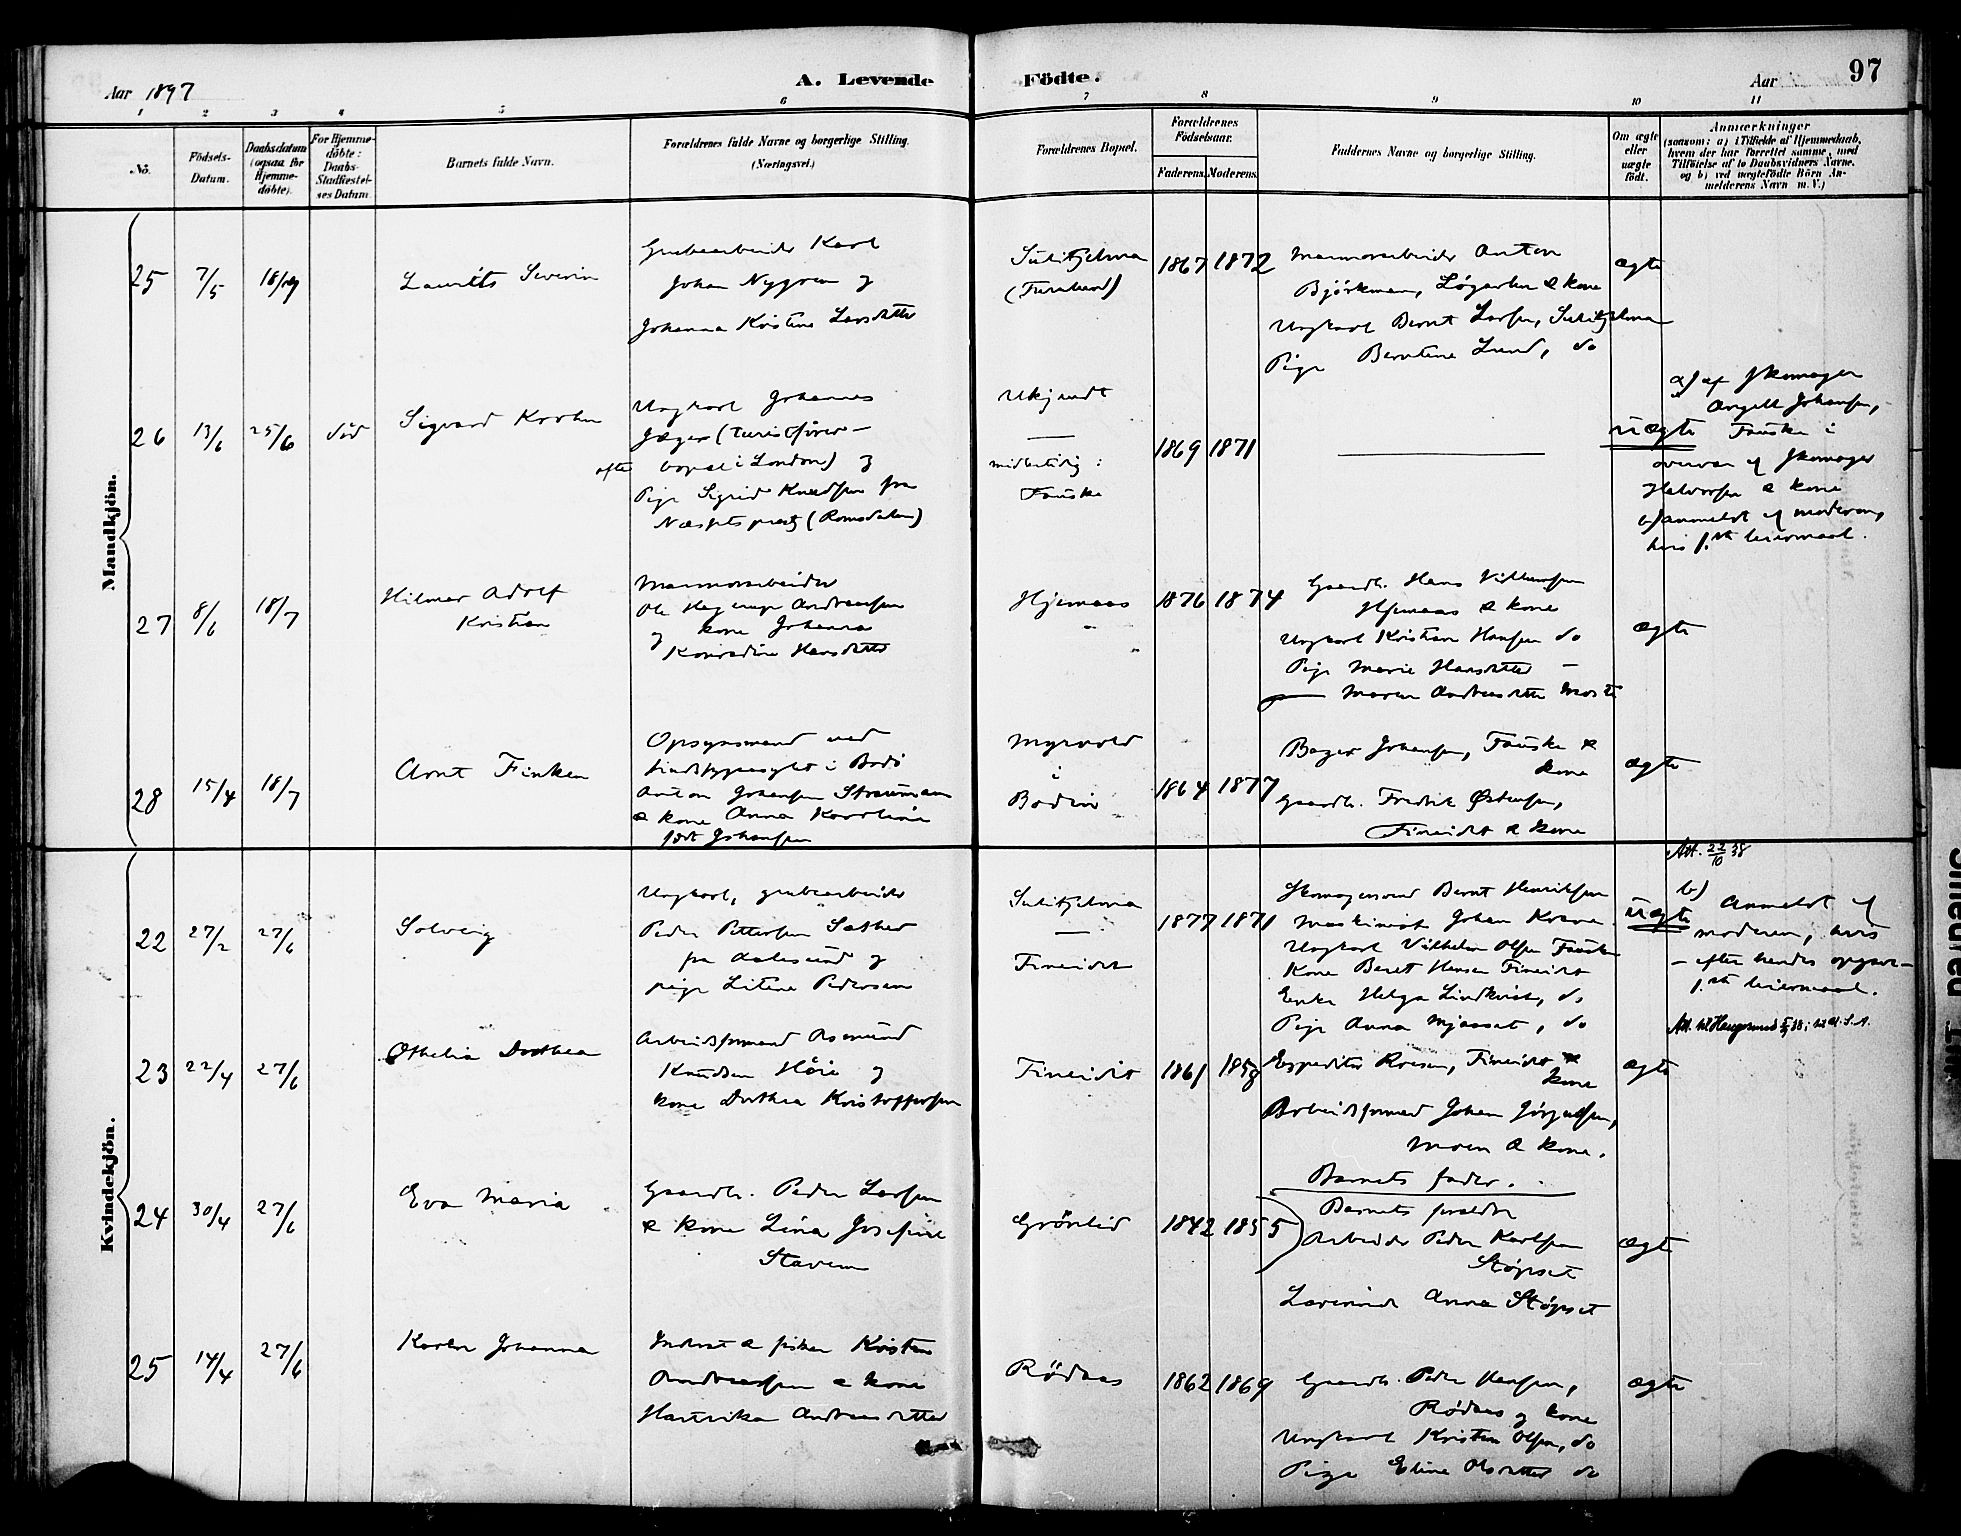 Aar 1897
A. Levende Födte.
Aar
97
1 2 3 4 5 6 7 8 9 10 11
No.
Födsels-Datum.
Daabsdatum (ogsaa for Hjemme-döbte).
For Hjemme-döbte: Daabs-Stadfæstel-ses Datum
Barnets fulde Navn.
Forældrenes fulde Navne og borgerlige Stilling. (Næringsvei.)
Forældrenes Bopæl.
Forældrenes Födselsaar.
Faderens. Moderens.
Faddernes Navne og borgerlige Stilling.
Om ægte eller uægte födt.
Anmærkninger
(saasom: a) i Tilfælde af Hjemmedaab, hvem der har forrettet samme, med Tilföielse af to Daabsvidners Navne. og b) ved uægtefödte Börn An-melderens Navn m. V.)
Mandkjön.
25 7/5 Laurits Severin
Grubearbeider Karl
Johan Nygren og
Johanna Kristine Larsdatter
Sulitjelma
(Furulund)
1867 1872
Marmorarbeider Anton
Björkman, Løgavlen & kone
Ungkarl Bernt Larsen, Sulitjelma
Pige Berntine Lund, do
ægte
26 13/6 25/6 död Sigvard
Ungkarl Johannes
Jæger (Turistfører –
efter bopæl i London) og
Pige Sigrid Knudsen fra
Næssets præstg (Romsdalen)
Ukjendt
—
midlertidig:
Fauske
1869 1871
uægte
a) af Skomager
Angell Johansen,
Fauske i
overvær af Skomager
Halvorsen & kone
b) anmeldt af moderen,
hvis 1.ste leiermaal.
27 8/6 18/7 Hilmar Adolf
Kristian
Marmorarbeider
Ole Hagerup Andreassen
og kone Johanna
Konradine Hansdatter
Hjemaas
1876 1874
Gaardb. Hans Vilhelmsen
Hjemaas & kone
Ungkarl Kristian Hansen do
Pige Marie Hansdatter –
— Maren Andreasdatter
ægte
28 15/4 18/7 Arnt Finken
Opsynsmand ved
Sindssygeasylet i Bodö
Anton Johansen Straumann
& kone Anna Karoline
født Johansen
Myrvold
i
Bodin
1864 1877
Bager Johansen, Fauske &
kone
Gaardb. Fredrik Østensen,
Fineidet & kone
ægte
Kvindekjön.
22 27/2 27/6 Solveig
Ungkarl, grubearbeider
Peder Pettersen Sæther
fra Aalesund og
pige Litene Pedersen
Sulitjelma
—
Fineidet
1877 1871
Skomagersvend Bernt Henriksen
Maskinist Johan
Ungkarl Vilhelm Olsen Fauske
Kone Berit Hansen Fineidet
Enke Helga Lindkvist, do
Pige Anna Mjaaset, do
uægte
Att. 22/10 38
b) Anmeldt af
moderen, hvis
– efter hendes opgave –
1.ste leiermaal.
23 22/4 27/6 Othelia Dorthea
Arbeidsformand Asmund
Knudsen Höie og
kone Dorthea Kristoffersen
Fineidet
1861 1858
Expeditör Roesen, Fineidet &
kone
Arbeidsformand Johan Jörgensen,
Moen & kone.
Barnets fader.
ægte
Att. til Haugesund
24 30/4 27/6 Eva Maria
Gaardb. Peder Larsen
& kone Lina Josefine
Stavern
Grönlid
1842 1855
Barnets forældre
Arbeider Peder Karlsen
Støpset
Lærerinde Anna Støpset
ægte
25 14/4 27/6 Johanna
Inderst & fisker Kristen
Andreassen & kone
Hartvika Andreasdatter
Rödaas
1862 1869
Gaardb. Peder Hansen,
Rödaas og kone
Ungkarl Kristen Olsen, do
Pige Eline Olsdatter do
ægte